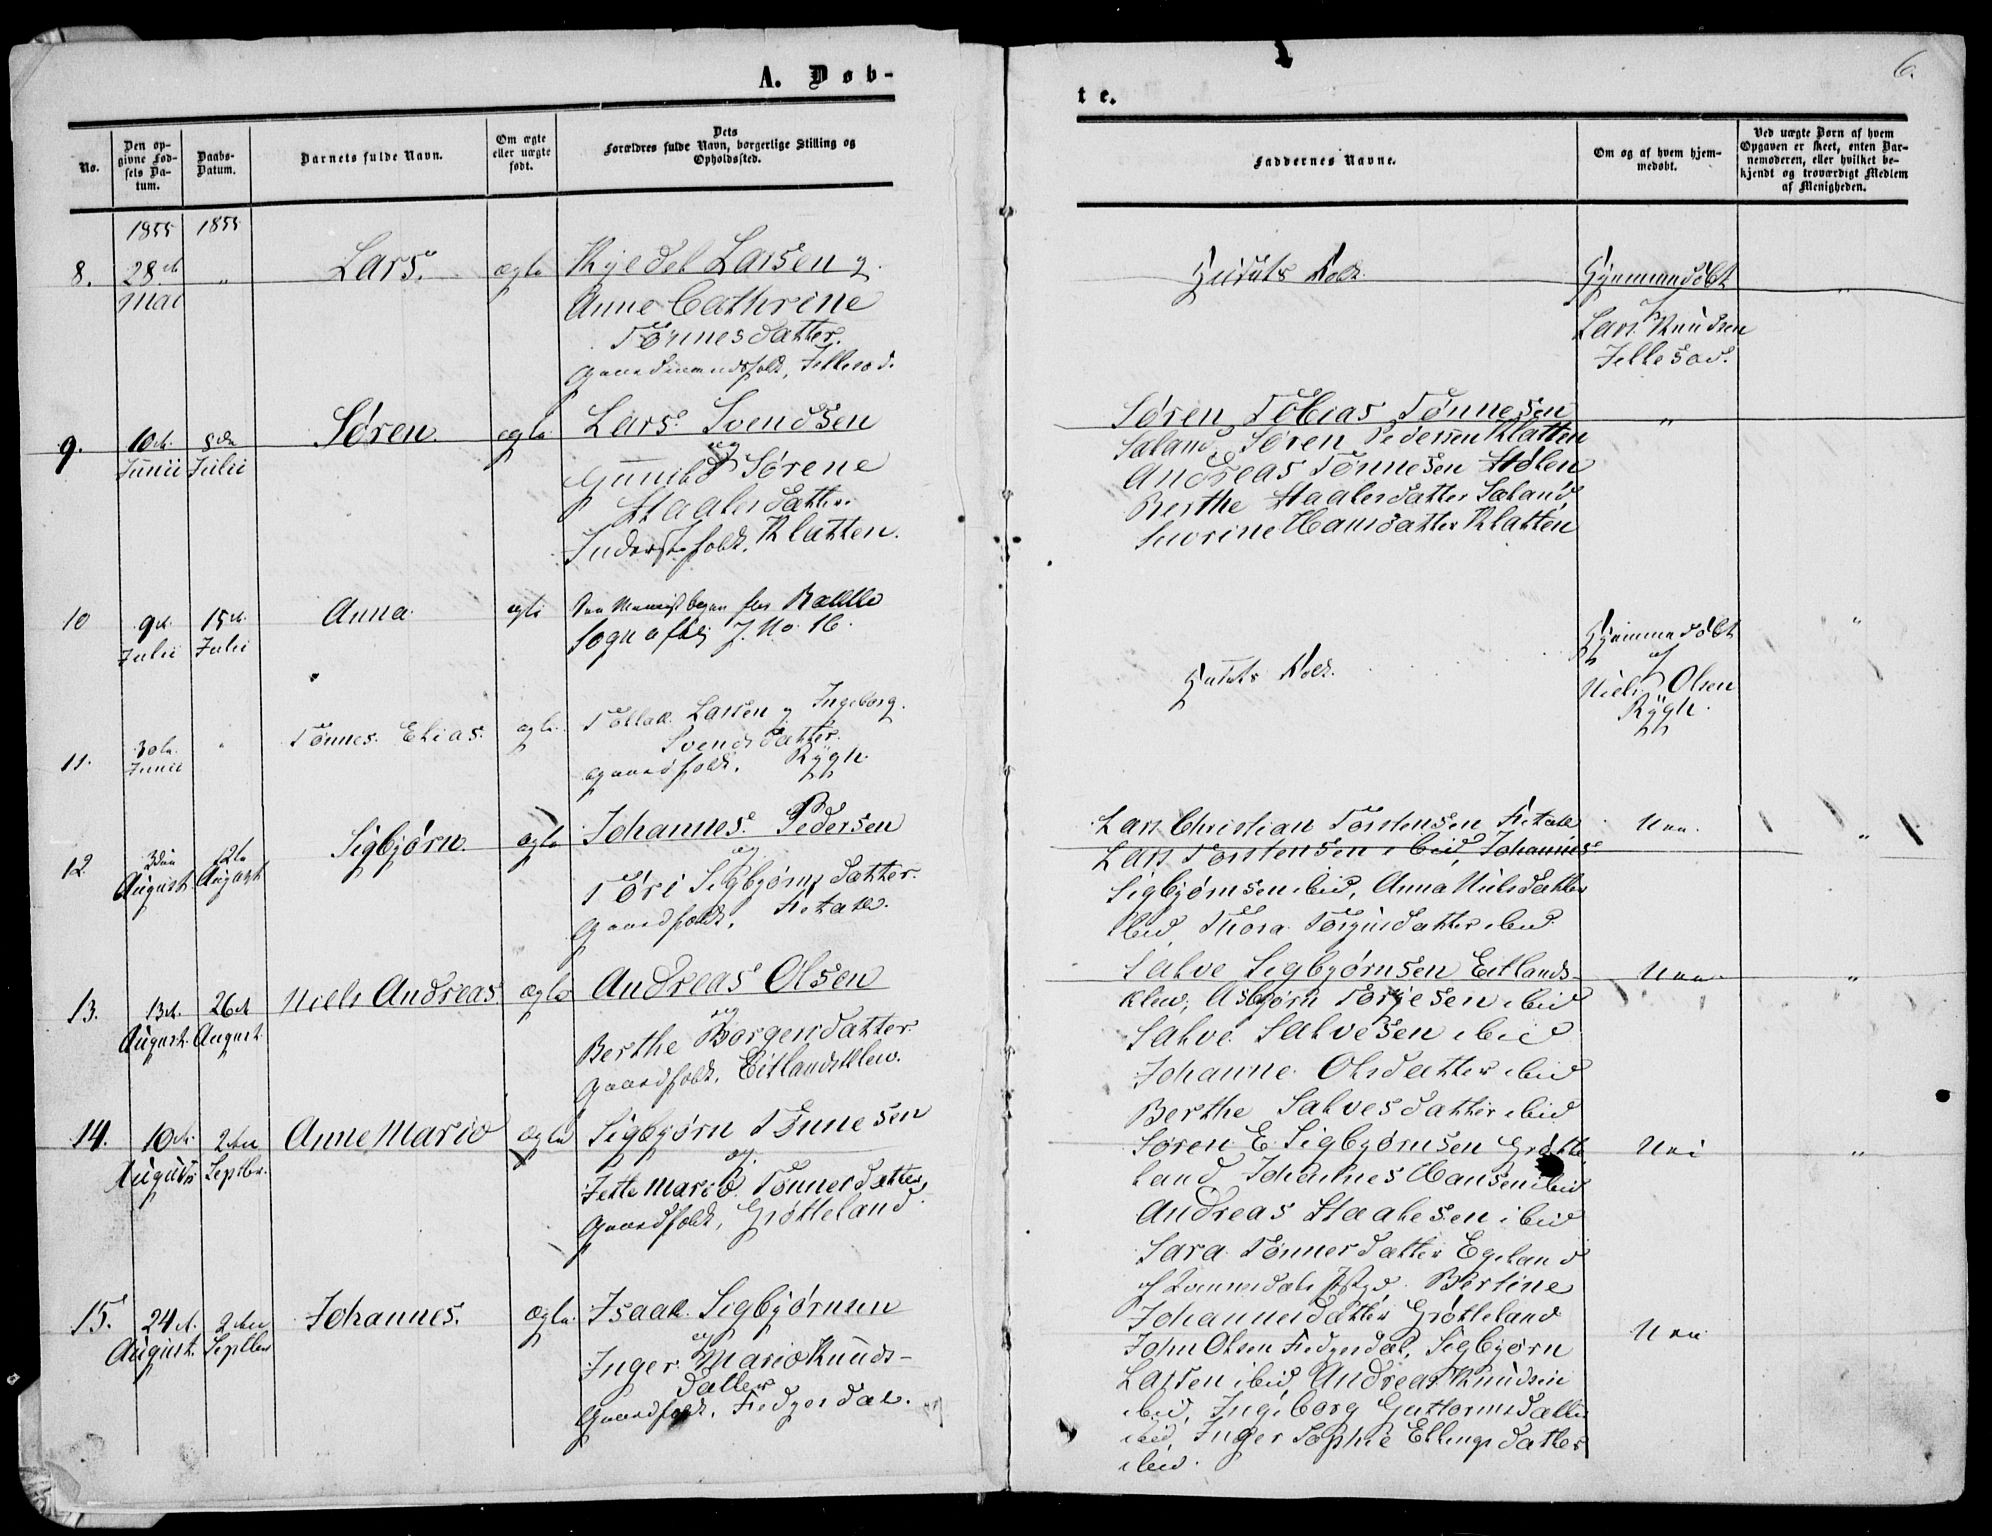 A. Døb-
No.
Den opgivne Fødsels Datum.
Daabs-Datum.
Barnets fulde Navn.
Om ægte eller uægte født.
Dets Forældres fulde Navn, borgerlige Stilling og Opholdssted.
1855 1855
8. 28de " Lars. ægte Kjedel Larsen og
Mai Anne Cathrine
Tønnesdatter.
Gaardmandsfolk, Jellesod.
9. 10de 8de Søren. ægte Lars Svendsen
Junii Julii og
Gunild Sørene
Staalesdatter.
Inderstfolk, Klatten.
10 9de 15de Anna ægte
Julii Julii J. No 16.
11. 30te " Tønnes Elias. ægte Tollak Larsen og Ingeborg
Junii Svendsdatter.
Gaardfolk, Rÿgh.
12. 3die 12te Sigbjørn. ægte Johannes Pedersen
August August og
Tøri Sigbjørnsdatter.
Gaardfolk,
13. 13de 26de Niels Andreas ægte Andreas Olsen
August August og
Berthe Børgensdatter.
Gaardfolk, Eitlandsklev.
14. 10de 2den Anne Marie ægte Sigbjørn Tønnesen
August Septbr. og
Jette Marie Tønnesdatter,
Gaardfolk, Grøtteland.
15. 24de 2den Johannes. ægte Isaak Sigbjørnsen
August Septber og
Inger Marie Knuds-
datter
Gaardfolk, Fedgesdal.
6.
te.
Faddernes Navne.
Om og af hvem hjemmedøbt.
Ved uægte Børn af hvem Opgaven er skeet, enten Barnemoderen, eller hvilket bekjendt og troværdigt Medlem af Menigheden.
Hjemmedøbt "
af
Lars Knudsen
Jellesod.
Søren Tobias Tønnesen "
Saland, Søren Pedersen Klatten
Andreas Tønnesen Hølen
Berthe Staalesdatter Saland
Severine Hansdatter Klatten
Hjemmedøbt "
af
Niels Olsen
Rÿgh.
Lars Christian Torstensen Nei. "
Lars Torstensen ibid, Johannes
Sigbjørnsen ibid, Anna Nielsdatter
ibid Thora Torgiusdatter ibid
Salve Sigbjørnsen Eitlands- Nei. "
klev, Asbjørn Torjesen ibid
Salve Salvesen ibid
Johanne Olsdatter ibid
Berthe Salvesdatter ibid
Søren E. Sigbjørnsen Grøtte Nei "
land Johannes Hansen ibid
Andreas Staalesen ibid
Sara Tønnesdatter Egeland
Bertine
Johannesdatter Grøtteland
John Olsen Fedgesdal, Sigbjørn Nei
Larsen ibid, Andreas Knudsen
ibid, Ingeborg Guttormsdatter
ibid, Inger Sophie Ellingsdatter
ibid.